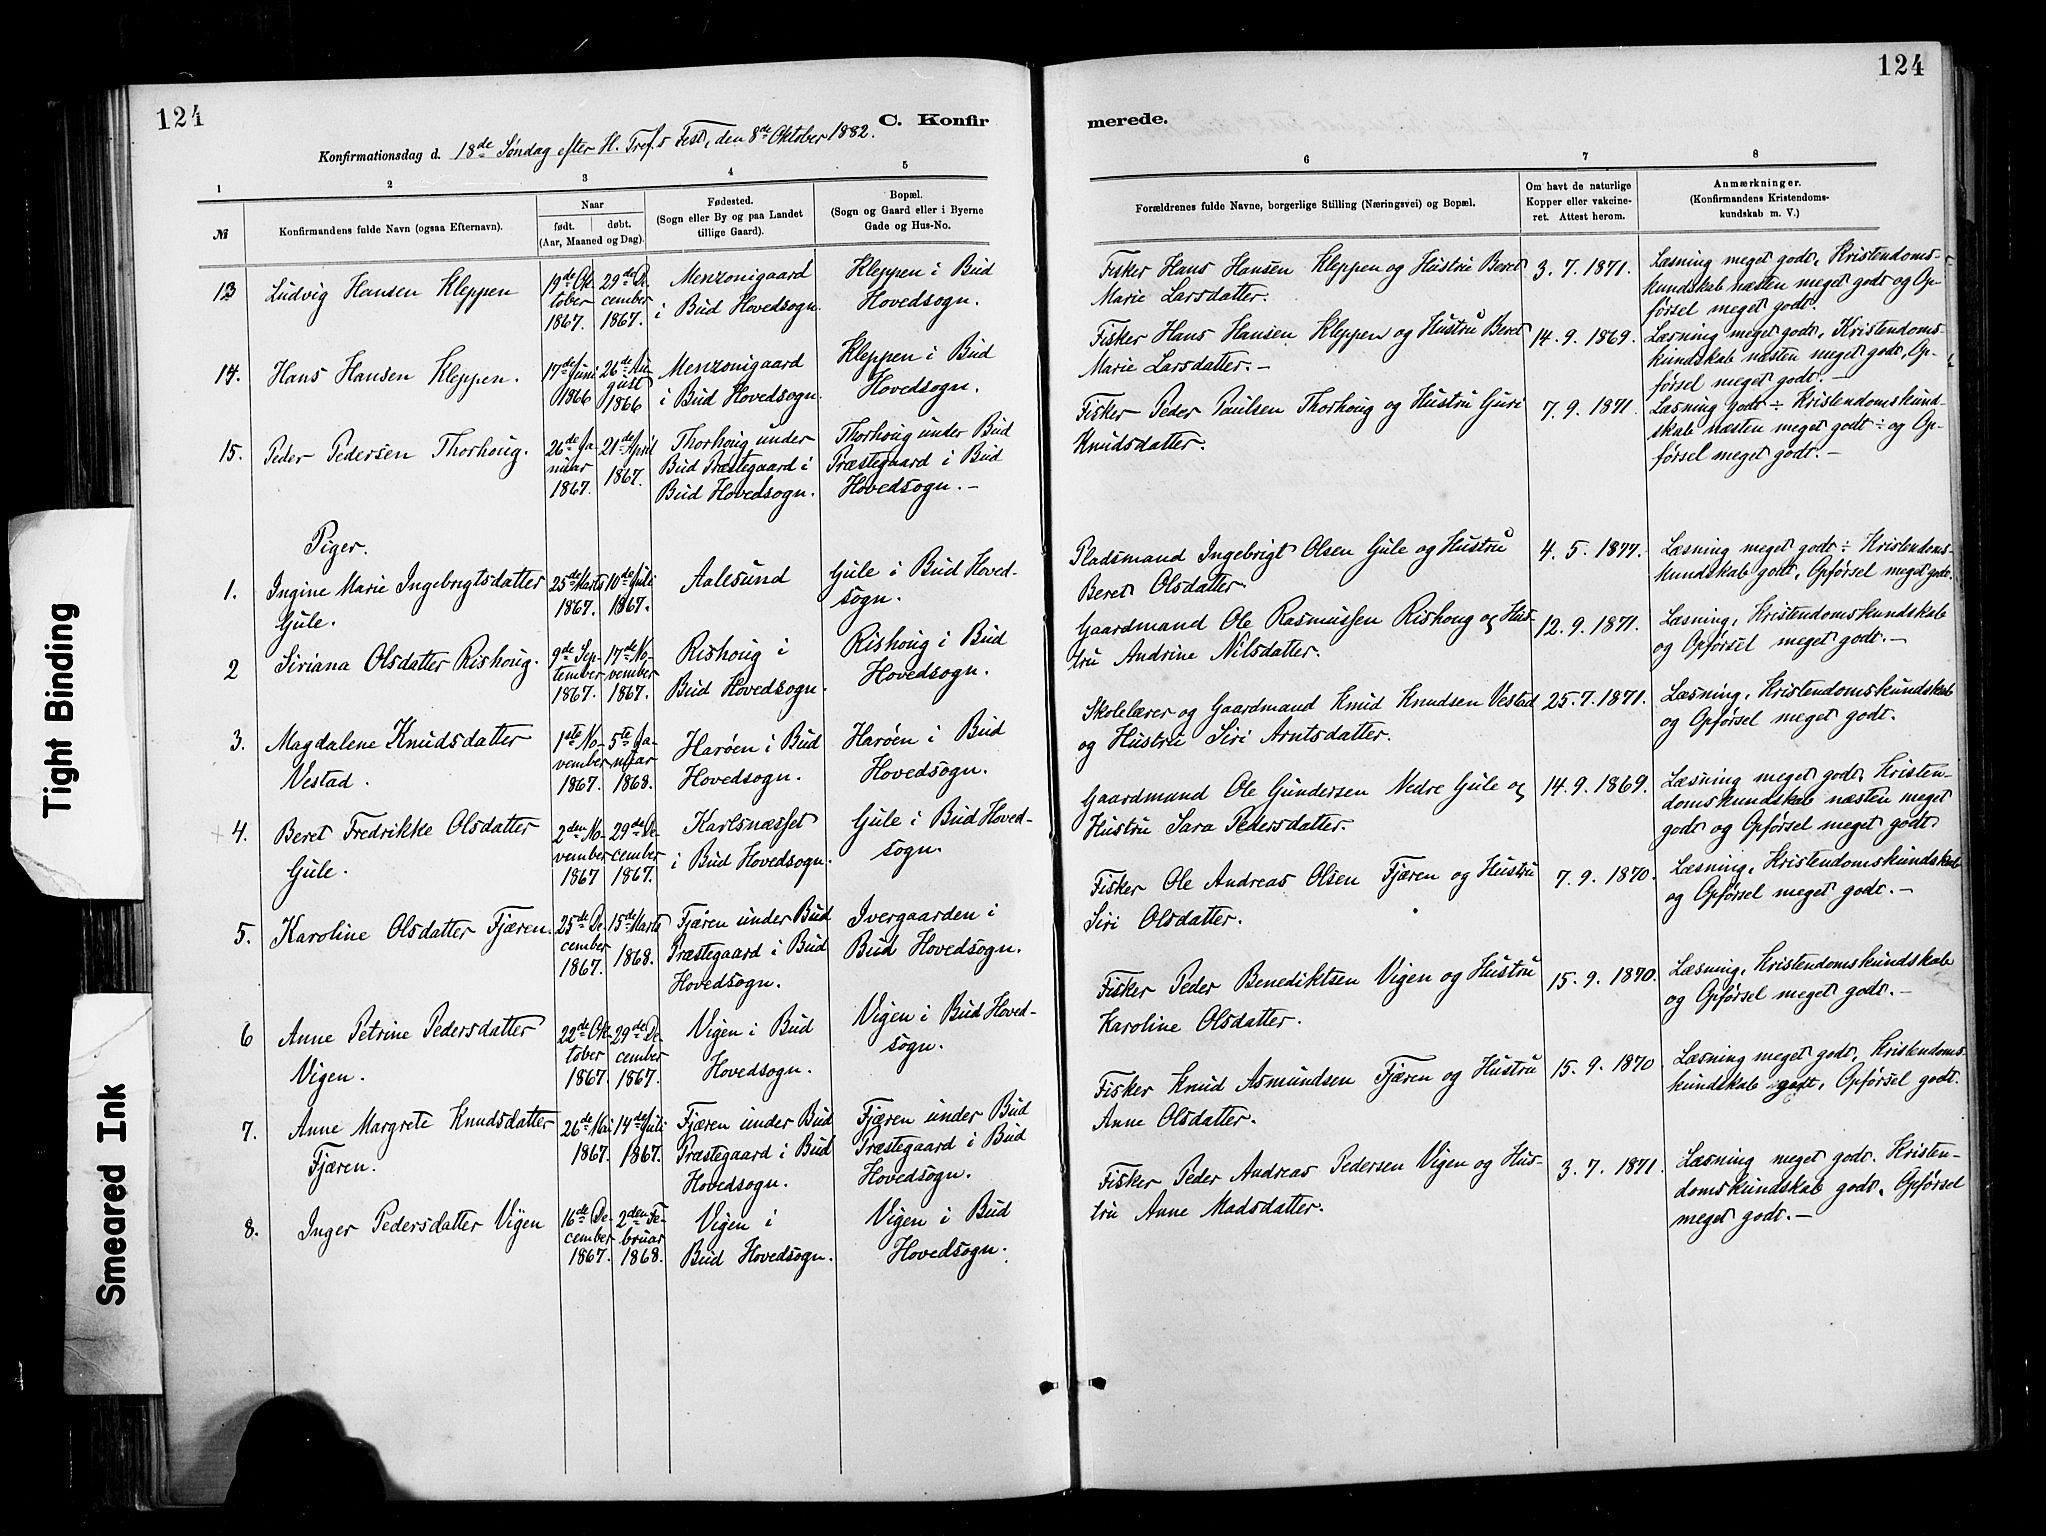 124
C. Konfir
Konfirmationsdag d. 18de Søndag efter H. Tref.s Fest, den 8de Oktober 1882.
1
2
3
4
5
№
Konfirmandens fulde Navn (ogsaa Efternavn).
Naar
født. døbt.
(Aar, Maaned og Dag).
Fødested.
(Sogn eller By og paa Landet
tillige Gaard).
Bopæl.
(Sogn og Gaard eller i Byerne
Gade og Hus-No.
13
Ludvig Hansen Kleppen
19de Ok-
tober
1867.
29de De-
cember
1867.
Menzonigaard
i Bud Hovedsogn.
Kleppen i Bud
Hovedsogn.
14.
Hans Hansen Kleppen.
17de Juni
1866
26de Au-
gust
1866
Menzonigaard
i Bud Hovedsogn.
Kleppen i Bud
Hovedsogn.
15.
Peder Pedersen Thorhoug.
26de Ja-
nuar
1867.
21de April
1867.
Thorhoug under
Bud Præstegaard i
Bud Hovedsogn.
Thorhoug under Bud
Præstegaard i Bud
Hovedsogn. –
Piger.
1.
Ingine Marie Ingebrigtsdatter
Gule.
25de Marts
1867.
10de Juli
1867.
Aalesund
Gule i Bud Hoved-
sogn.
2
Siriana Olsdatter Rishoug.
9de Sep-
tember
1867.
17de No-
vember
1867.
Rishoug i
Bud Hovedsogn.
Rishoug i Bud
Hovedsogn.
3.
Magdalene Knudsdatter
Vestad.
1ste No-
vember
1867.
5te Ja-
nuar
1868.
Harøen i Bud
Hovedsogn.
Harøen i Bud
Hovedsogn.
4.
Beret Fredrikke Olsdatter
Gule.
2den No-
vember
1867
29de De-
cember
1867.
Karlsnæsset
i Bud Hovedsogn.
Gule i Bud Hoved-
sogn.
5.
Karoline Olsdatter Fjæren.
25de De-
cember
1867.
15de Marts
1868.
Fjæren under Bud
Præstegaard i Bud
Hovedsogn.
Ivergaarden i
Bud Hovedsogn.
6
Anne Petrine Pedersdatter
Vigen.
22de Ok-
tober
1867.
29de De-
cember
1867.
Vigen i Bud
Hovedsogn.
Vigen i Bud Hoved-
sogn.
7.
Anne Margrete Knudsdatter
Fjæren.
26de Mai
1867.
14de Juli
1867.
Fjæren under Bud
Præstegaard i Bud
Hovedsogn.
Fjæren under Bud
Præstegaard i Bud
Hovedsogn.
8.
Inger Pedersdatter Vigen
16de De-
cember
1867.
2den Fe-
bruar
1868.
Vigen i
Bud Hovedsogn.
Vigen i Bud
Hovedsogn.
124
merede.
6
7
8
Forældrenes fulde Navne, borgerlige Stilling (Næringsvei) og Bopæl.
Om havt de naturlige
Kopper eller vakcine-
ret. Attest herom.
Anmærkninger.
(Konfirmandens Kristendoms-
kundskab m. V.)
Fisker Hans Hansen Kleppen og Hustru Beret
Marie Larsdatter.
3. 7. 1871.
Læsning meget godt, Kristendoms-
kundskab næsten meget godt og Op-
førsel meget godt.
Fisker Hans Hansen Kleppen og Hustru Beret
Marie Larsdatter. –
14. 9. 1869.
Læsning meget godt, Kristendoms-
kundskab næsten meget godt, Op-
førsel meget godt. –
Fisker Peder Paulsen Thorhoug og Hustru Guri
Knudsdatter.
7. 9. 1871.
Læsning godt ÷ Kristendomskund-
skab næsten meget godt ÷ og Op-
førsel meget godt. –
Pladsmand Ingebrigt Olsen Gule og Hustru
Beret Olsdatter.
4. 5. 1877.
Læsning meget godt ÷ Kristendoms-
kundskab godt, Opførsel meget godt.
Gaardmand Ole Rasmussen Rishoug og Hus-
tru Andrine Nilsdatter.
12. 9. 1871.
Læsning, Kristendomskundskab
og Opførsel meget godt. –
Skolelærer og Gaardmand Knud Knudsen Vestad
og Hustru Siri Arntsdatter.
25. 7. 1871.
Læsning, Kristendomskundskab
og Opførsel meget godt.
Gaardmand Ole Gundersen Nedre Gule og
Hustru Sara Pedersdatter.
14. 9. 1869.
Læsning meget godt, Kristen-
domskundskab næsten meget
godt og Opførsel meget godt.
Fisker Ole Andreas Olsen Fjæren og Hustru
Siri Olsdatter.
7. 9. 1870.
Læsning, Kristendomskundskab
og Opførsel meget godt. –
Fisker Peder Benediktsen Vigen og Hustru
Karoline Olsdatter.
15. 9. 1870.
Læsning, Kristendomskundskab
og Opførsel meget godt. –
Fisker Knud Asmundsen Fjæren og Hustru
Anne Olsdatter.
15. 9. 1870
Læsning meget godt, Kristendoms-
kundskab godt, Opførsel godt.
Fisker Peder Andreas Pedersen Vigen og Hus-
tru Anne Madsdatter.
3. 7. 1871.
Læsning meget godt. Kristen-
domskundskab godt, Opførsel
meget godt. –
Tight Binding
Smeared Ink